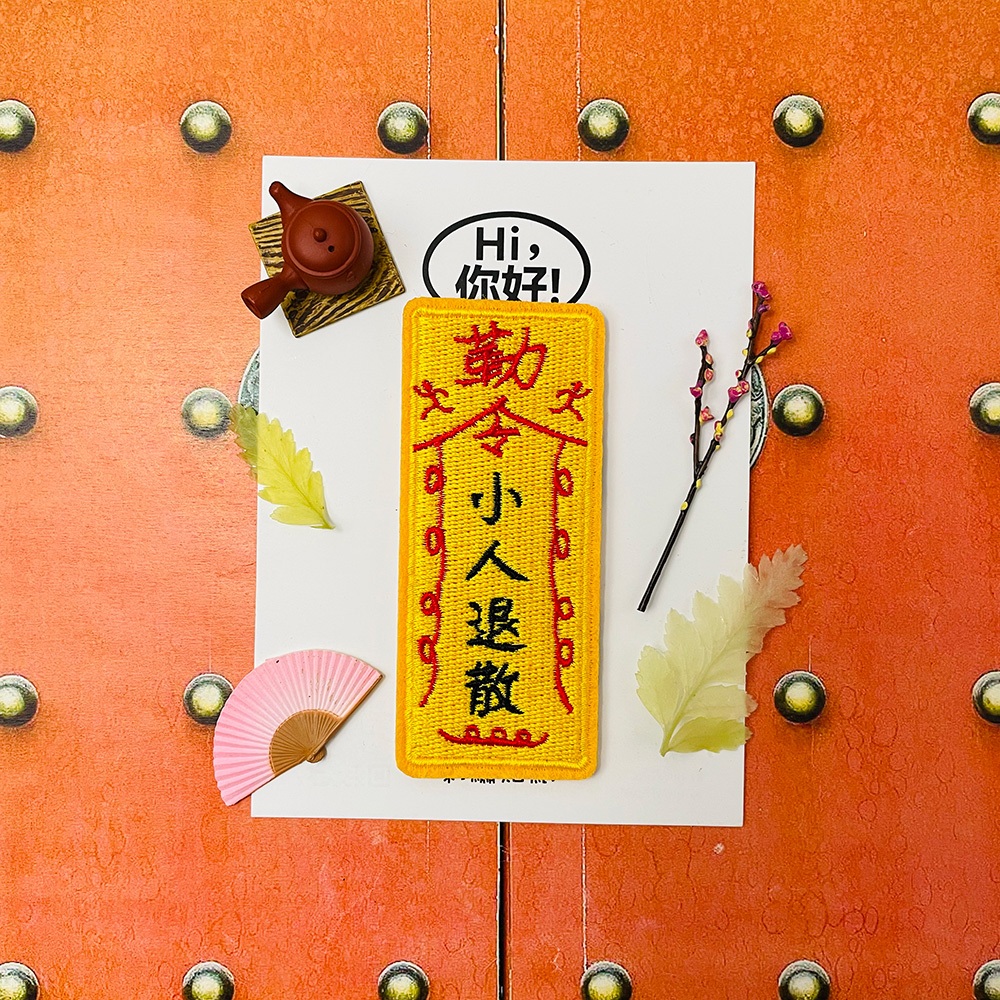 Hi，
你好!
勒令
小人退散